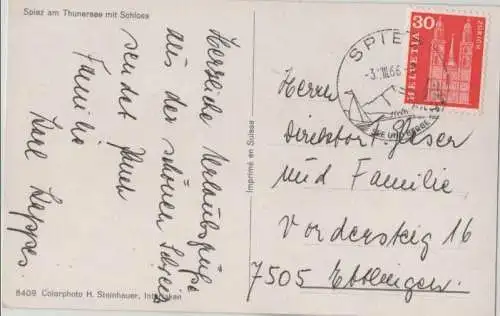 Spiez am Thunersee mit Schloss
Herzliche Urlaubsgrüße
aus der schönen Schweiz
sendet Ihnen
Familie
Karl Kappes
Imprimé en Suisse
8409 Colorphoto H. Steinhauer, Interlaken
SPIEZ
-3.III.66
SEE UND BERGE
30
HELVETIA
ZÜRICH
Herrn
Direktor Gläser
und Familie
Vordersteig 16
7505 Ettlingen